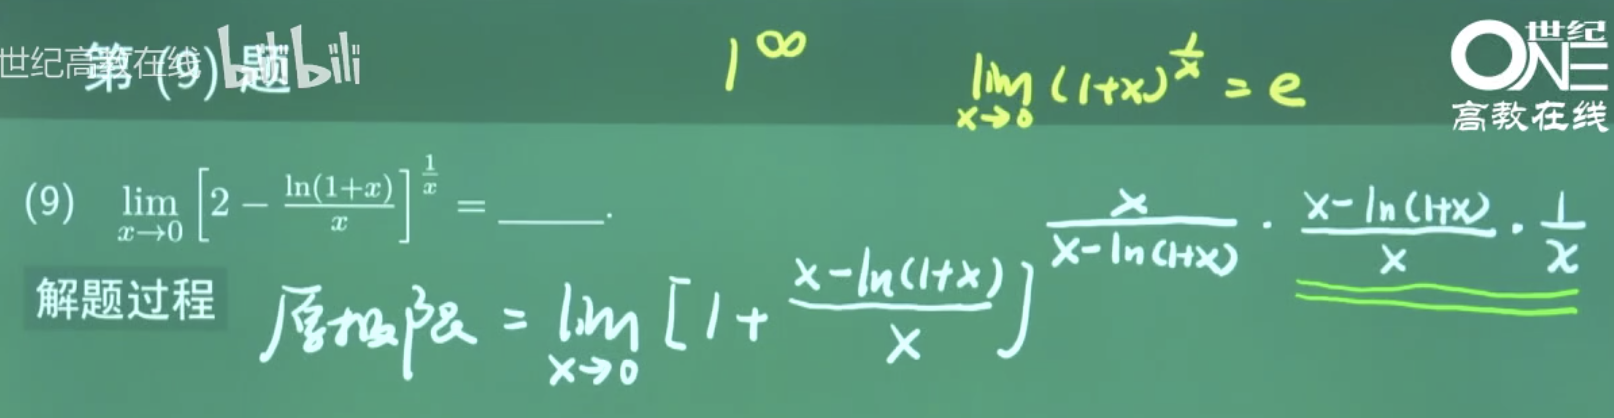 世纪高教在线 bilibili
第 (9) 题
1^∞
lim_{x→0} (1+x)^{1/x} = e
ONE 世纪
高教在线
(9) lim_{x→0} [2 − ln(1+x)/x]^{1/x} = ______.
解题过程
原极限 = lim_{x→0} [1 + (x−ln(1+x))/x]^{x/(x−ln(1+x)) · (x−ln(1+x))/x · 1/x}